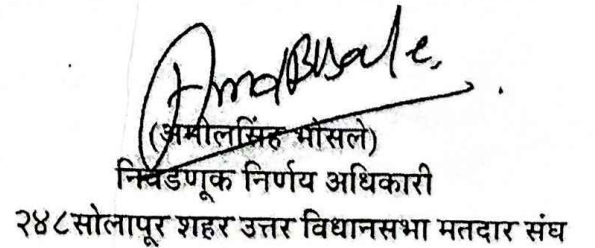 (अमोलसिंह भोसले)
निवडणूक निर्णय अधिकारी
२४८सोलापूर शहर उत्तर विधानसभा मतदार संघ